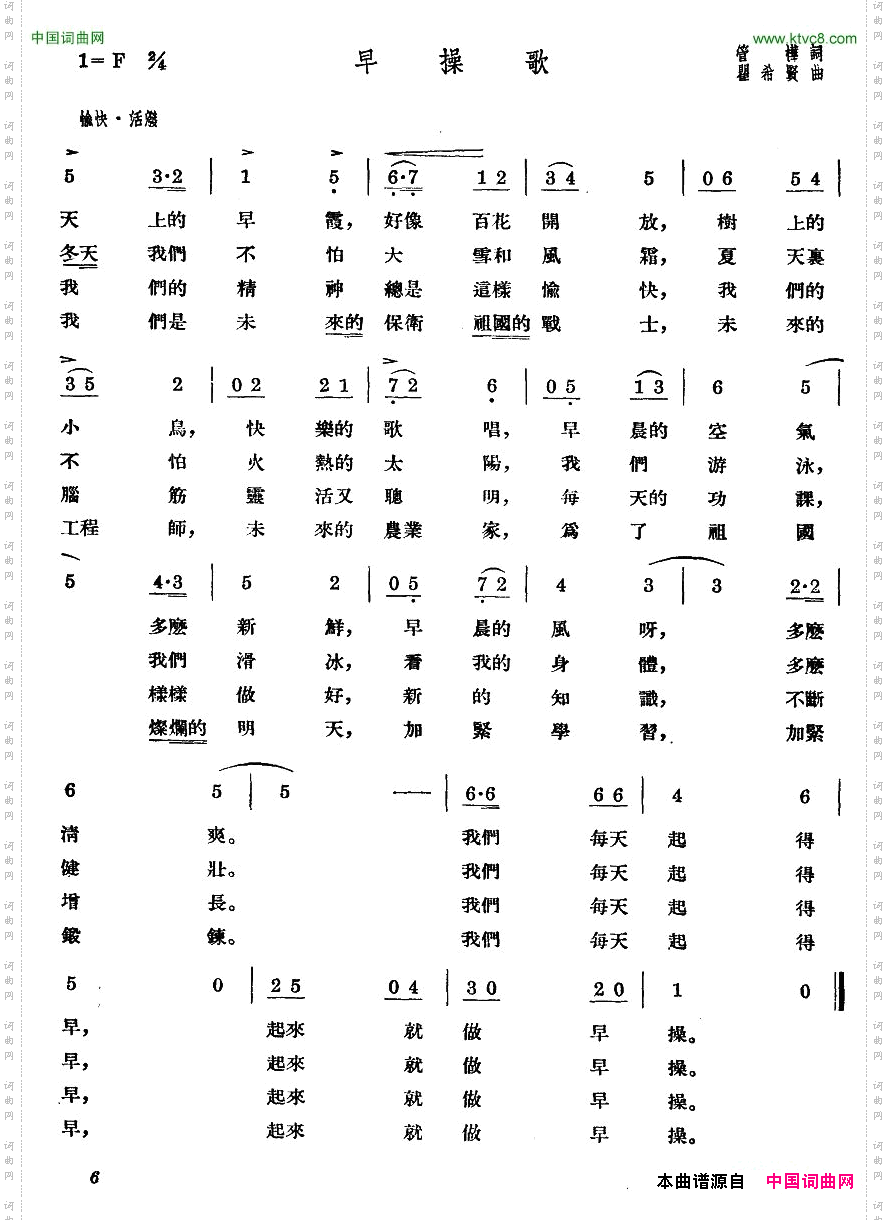 中国词曲网
www.ktvc8.com
1=F 2/4 早操歌 管樺詞
瞿希賢曲
愉快·活潑
5 3·2 | 1 5 | 6·7 1 2 | 3 4 5 | 0 6 5 4 |
天 上的 早 霞, 好像 百花 開 放, 樹 上的
冬天 我們 不 怕 大 雪和 風 霜, 夏 天裏
我 們的 精 神 總是 這樣 愉 快, 我 們的
我 們是 未 來的 保衛 祖國的 戰 士, 未 來的
3 5 2 | 0 2 2 1 | 7 2 6 | 0 5 1 3 | 6 5 |
小 鳥, 快 樂的 歌 唱, 早 晨的 空 氣
不 怕 火 熱的 太 陽, 我 們 游 泳,
腦 筋 靈 活又 聰 明, 每 天的 功 課,
工程 師, 未 來的 農業 家, 爲 了 祖 國
5 4·3 | 5 2 | 0 5 7 2 | 4 3 | 3 2·2 |
多麽 新 鮮, 早 晨的 風 呀, 多麽
我們 滑 冰, 看 我的 身 體, 多麽
樣樣 做 好, 新 的 知 識, 不斷
燦爛的 明 天, 加 緊 學 習, 加緊
6 5 | 5 — | 6·6 6 6 | 4 6 |
清 爽。 我們 每天 起 得
健 壯。 我們 每天 起 得
增 長。 我們 每天 起 得
鍛 鍊。 我們 每天 起 得
5 0 | 2 5 0 4 | 3 0 2 0 | 1 0 ‖
早, 起來 就 做 早 操。
早, 起來 就 做 早 操。
早, 起來 就 做 早 操。
早, 起來 就 做 早 操。
6 本曲谱源自 中国词曲网